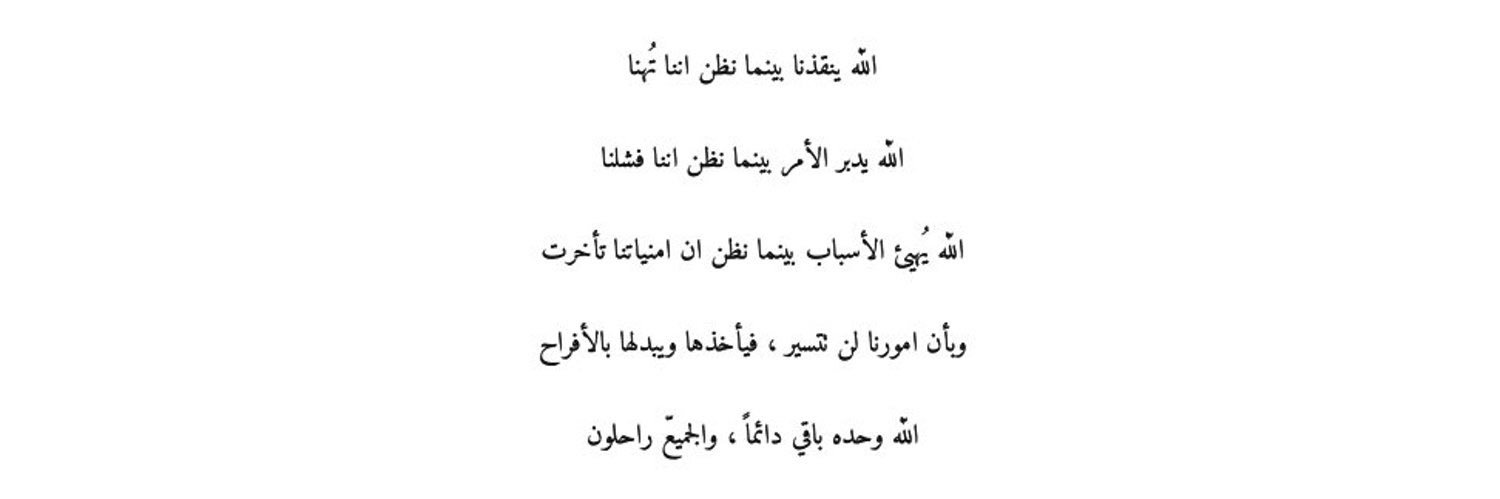 الله ينقذنا بينما نظن اننا تُهنا
الله يدبر الأمر بينما نظن اننا فشلنا
الله يُهيئ الأسباب بينما نظن ان امنياتنا تأخرت
وبأن امورنا لن تتسير ، فيأخذها ويبدلها بالأفراح
الله وحده باقي دائماً ، والجميعّ راحلون